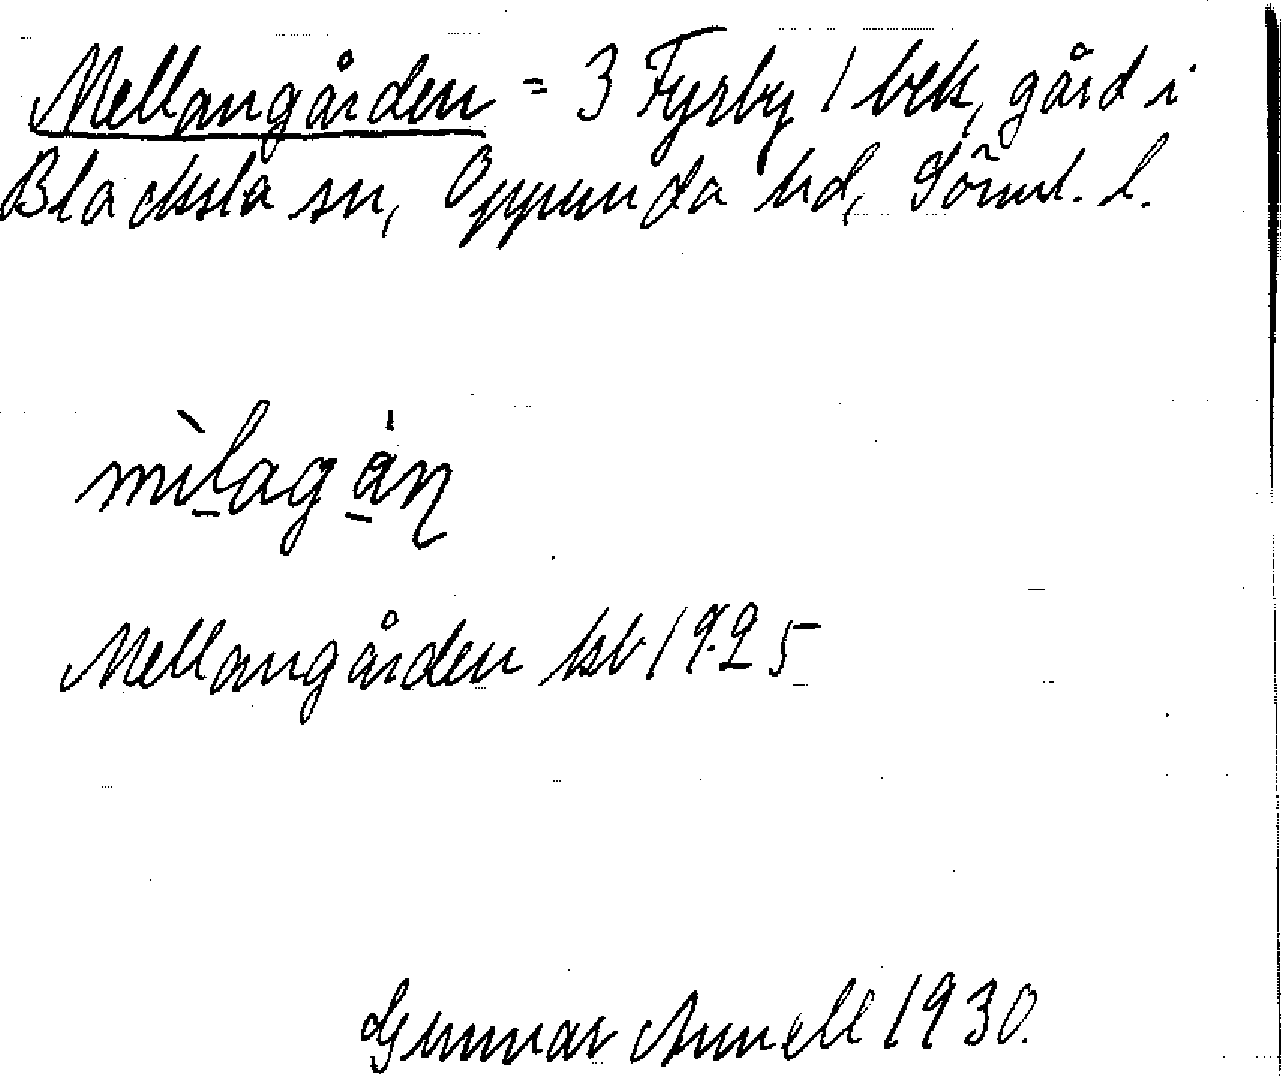 Mellangården = 3 Fyrby 1 bek, gård i
Blacksta sn, Oppunda hd, Söml. l.
mìlagán
Mellangården kb 1925
Gunnar Annell 1930.